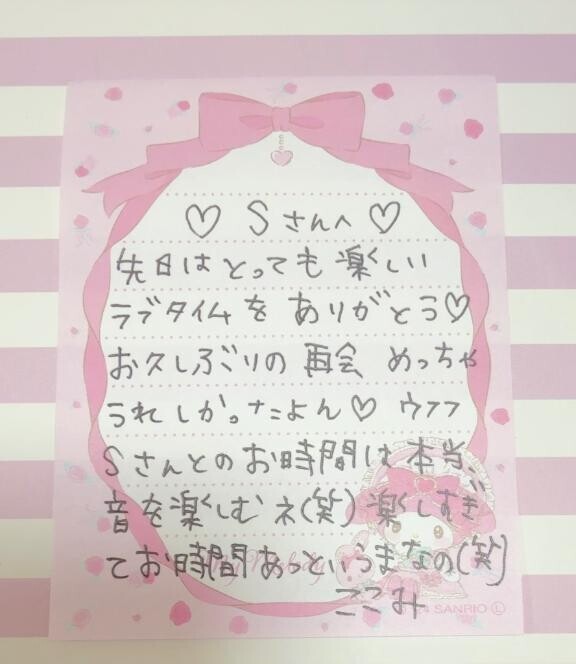 ♡ Sさんへ ♡
先日はとっても楽しい
ラブタイムを ありがとう♡
お久しぶりの 再会 めっちゃ
うれしかったよん♡ ウフフ
Sさんとのお時間は本当、
音を楽しむネ(笑) 楽しすぎ
てお時間あっというまなの(笑)
ここみ
SANRIO Ⓛ